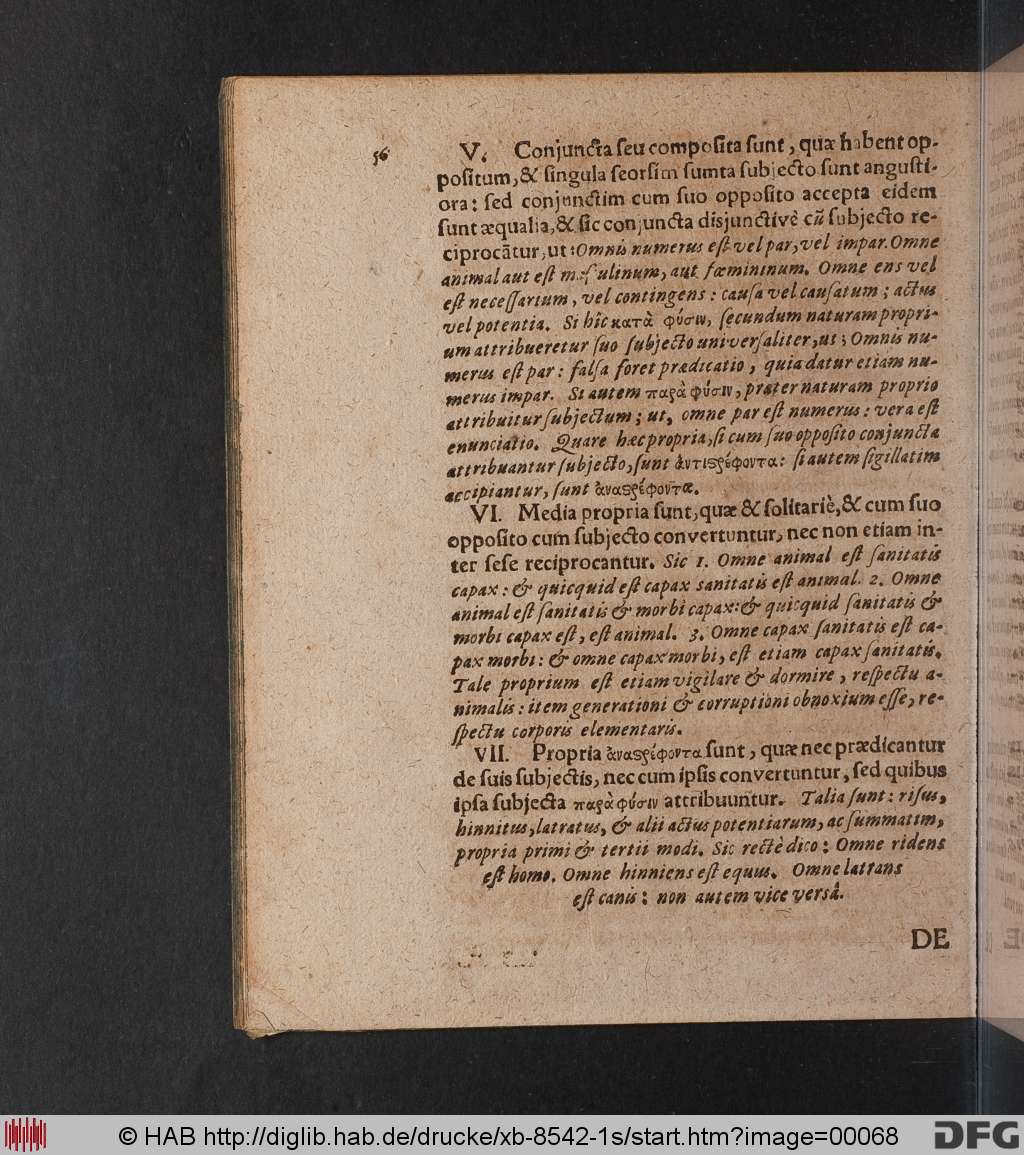 56
V. Conjuncta seu composita sunt, quæ habent op-
positum, & singula seorsim sumta subjecto sunt angusti-
ora: sed conjunctim cum suo opposito accepta eidem
sunt æqualia, & sic conjuncta disjunctivè cũ subjecto re-
ciprocãtur, ut: Omnis numerus est vel par, vel impar. Omne
animal aut est masculinum, aut fœmininum. Omne ens vel
est necessarium, vel contingens: causa vel causatum; actus
vel potentia. Si hîc κατὰ φύσιν, secundum naturam propri-
um attribueretur suo subjecto universaliter, ut; Omnis nu-
merus est par: falsa foret prædicatio, quia datur etiam nu-
merus impar. Si autem παρὰ φύσιν, præter naturam proprio
attribuitur subjectum; ut, omne par est numerus: vera est
enunciatio. Quare hæc propria, si cum suo opposito conjuncta
attribuantur subjecto, sunt ἀντιϛρέφοντα: si autem sigillatim
accipiantur, sunt ἀναϛρέφοντα.
VI. Media propria sunt, quæ & solitariè, & cum suo
opposito cum subjecto convertuntur, nec non etiam in-
ter sese reciprocantur. Sic 1. Omne animal est sanitatis
capax: & quicquid est capax sanitatis est animal. 2. Omne
animal est sanitatis & morbi capax: & quicquid sanitatis &
morbi capax est, est animal. 3. Omne capax sanitatis est ca-
pax morbi: & omne capax morbi, est etiam capax sanitatis.
Tale proprium est etiam vigilare & dormire, respectu a-
nimalis: item generationi & corruptioni obnoxium esse, re-
spectu corporis elementaris.
VII. Propria ἀναϛρέφοντα sunt, quæ nec prædicantur
de suis subjectis, nec cum ipsis convertuntur, sed quibus
ipsa subjecta παρὰ φύσιν attribuuntur. Talia sunt: risus,
hinnitus, latratus, & alii actus potentiarum, ac summatim,
propria primi & tertii modi. Sic rectè dico: Omne ridens
est homo. Omne hinniens est equus. Omne latrans
est canis: non autem vice versâ.
DE
© HAB http://diglib.hab.de/drucke/xb-8542-1s/start.htm?image=00068
DFG